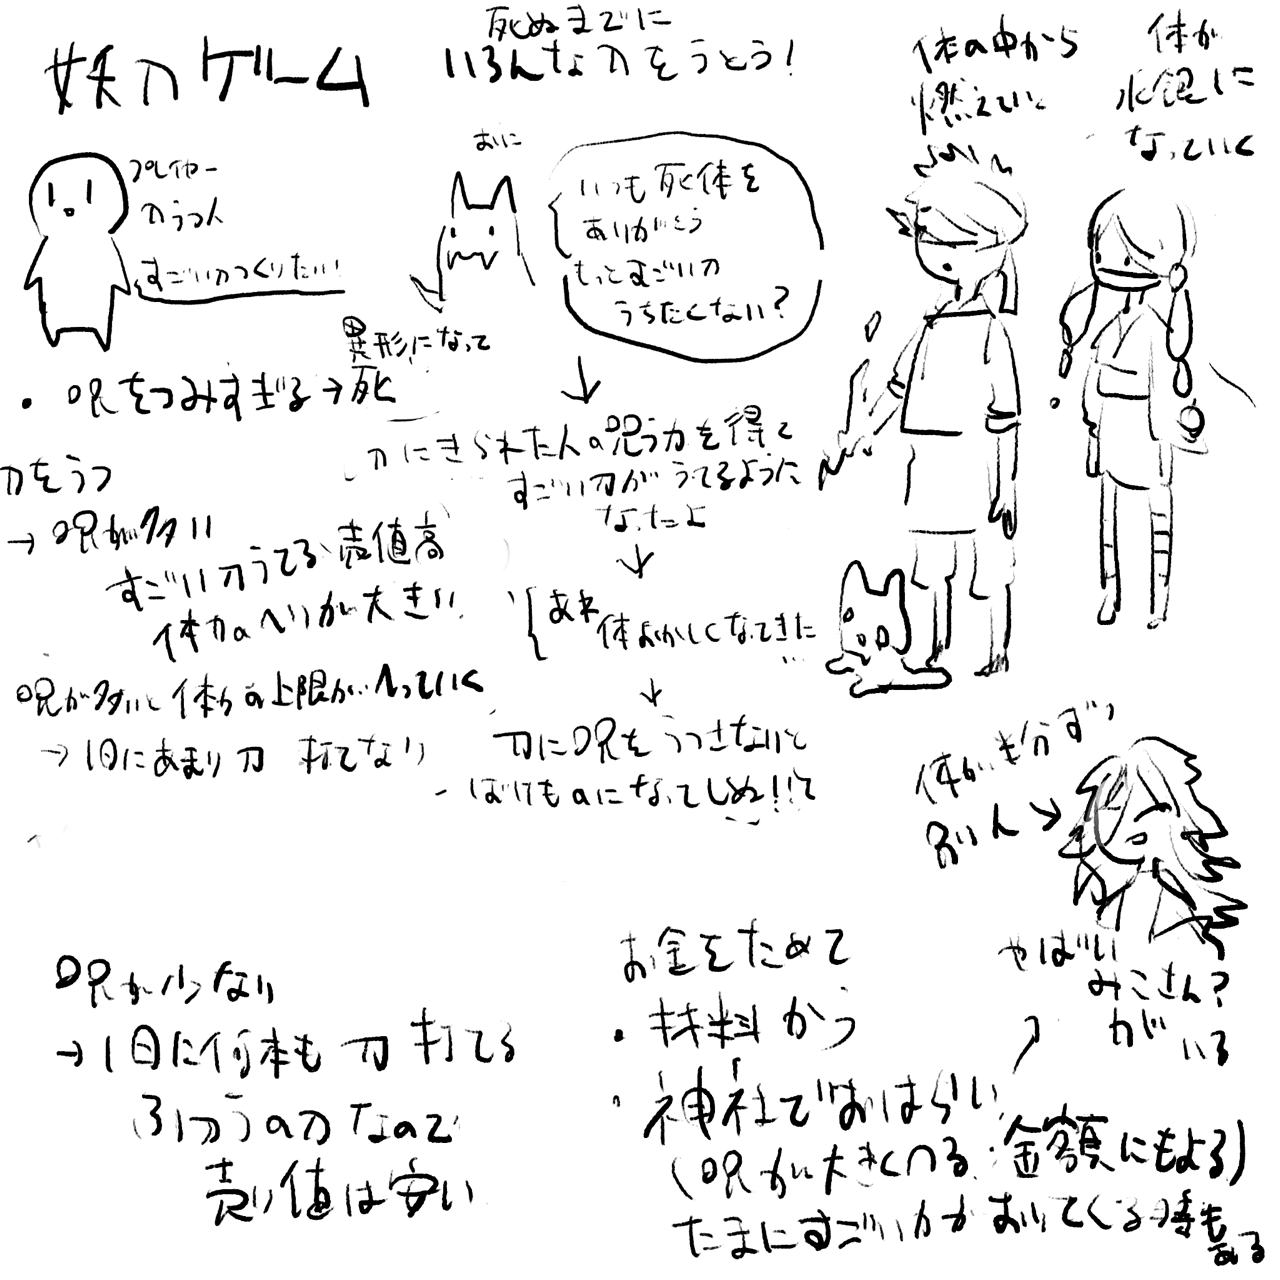 妖刀ゲーム
死ぬまでに
いろんな刀をうとう!
プレイヤー
刀うつ人
すごい刀つくりたい!
おに
いつも死体を
ありがとう
もっとすごい刀
うちたくない?
体の中から
燃えていく
体が
水銀に
なっていく
・呪をつみすぎる→
異形になって
死
刀をうつ
→呪が多い
すごい刀うてる 売値高
体力のへりが大きい
呪が多いと体力の上限がへっていく
→1日にあまり刀打てない
刀にきられた人の呪う力を得て
すごい刀がうてるように
なったよ
あれ
体おかしくなってきた
…
刀に呪をうつさないと
ばけものになってしぬ!!て
呪が少ない
→1日に何本も刀打てる
ふつうの刀なので
売り値は安い
お金をためて
・材料かう
・神社でおはらい
(呪が大きくへる 金額にもよる)
たまにすごい力がおりてくる時も
ある
体が半分ずつ
別人→
やばい
みこさん?
が
いる